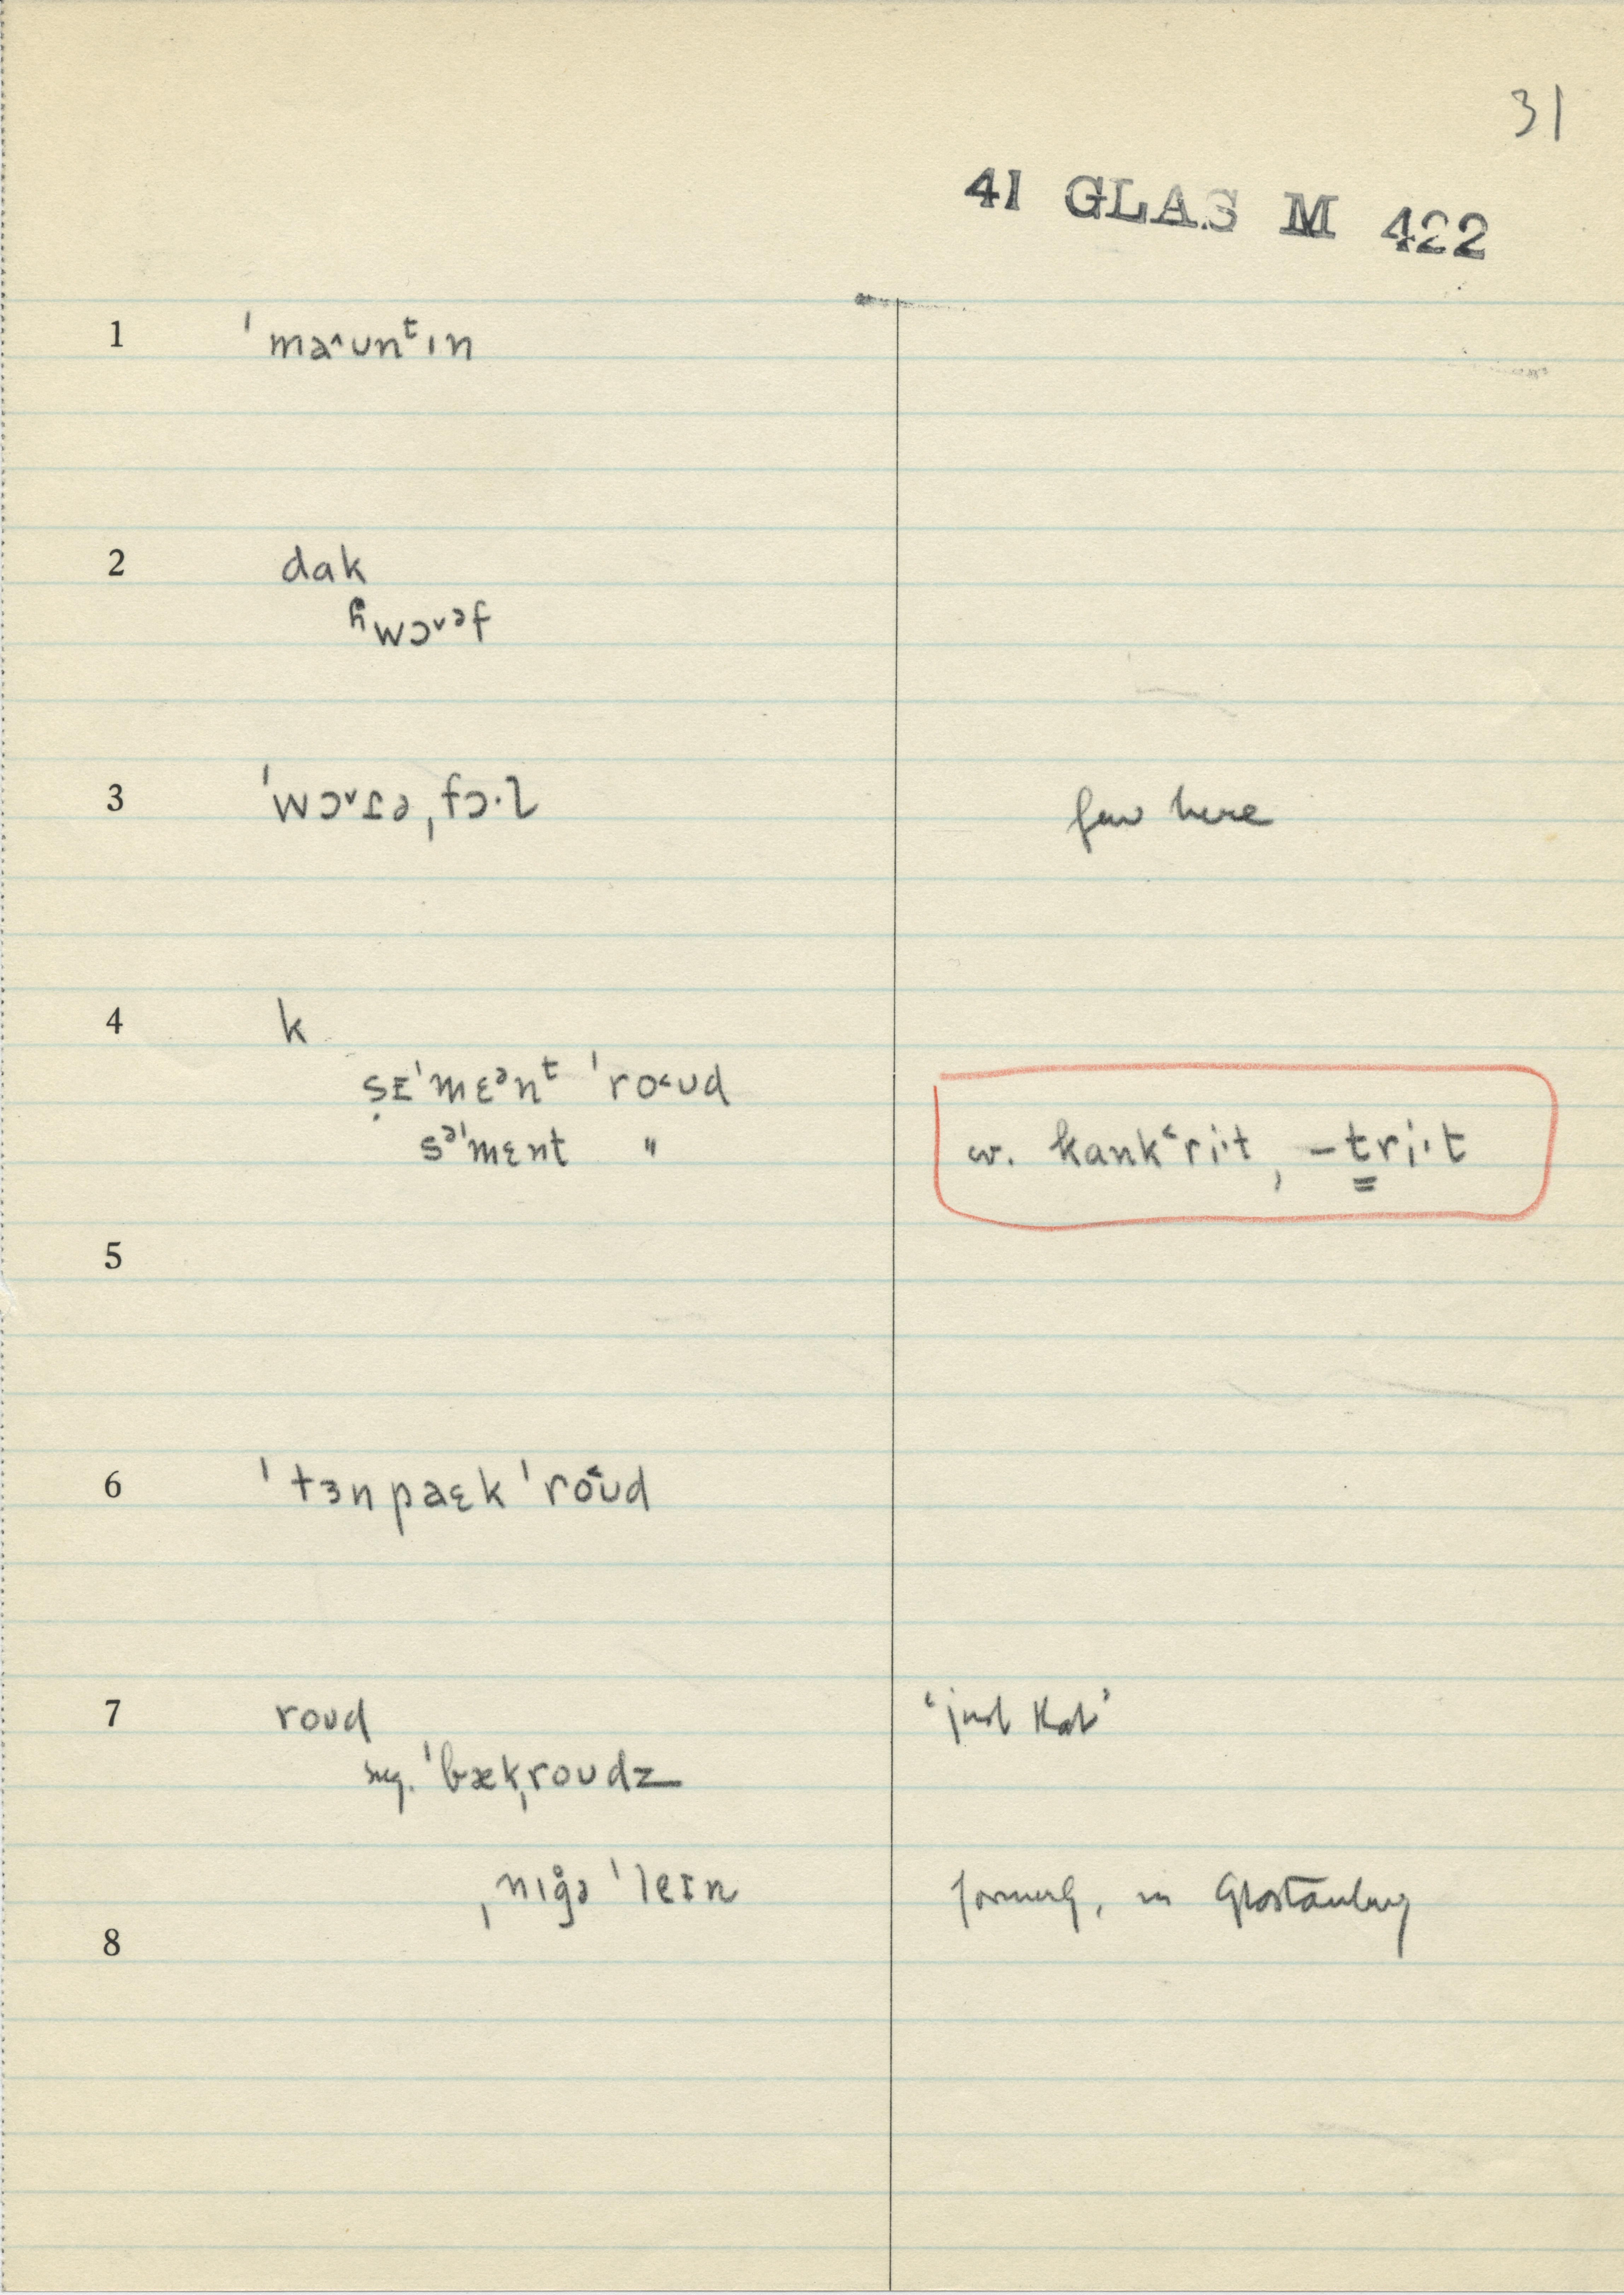 31
41 GLAS M 422
1 ˈmə˄ʊnᵗɪn
2 dak
ɦwɔ˅ᵊf
3 ˈwɔ˅ɾəˌfɔ·l few here
4 k
ṣɪˈmɛᵊnᵗ ˈro˂ʊd
sᵊˈmɛnt " w. kank˂ri·t, –tri·t
5
6 ˈtɜnpaɛk ˈro˂ʊd
7 roʊd ‘just that’
sug. ˈbækˌroʊdz
ˌnɪg̊ə ˈleɪn formerly, in Glastonbury
8